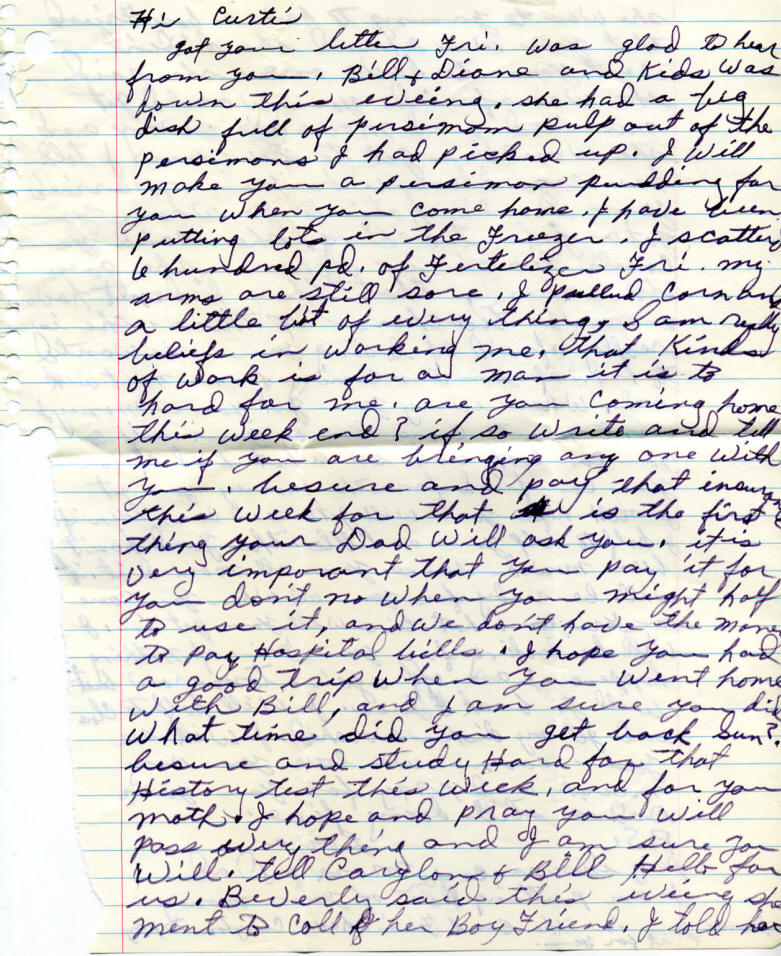 Hi Curtis
got your letter Fri. was glad to hear
from you. Bill & Diane and Kids was
down this eveing. she had a big
dish full of persimom pulp out of the
persimons I had picked up. I will
make you a persimon pudding for
you when you come home. I have been
putting lots in the Freezer. I scatterd
6 hundred pd. of Fertelizer Fri. my
arms are still sore. I pulled corn and
a little bit of every thing, Sam really
beliefs in working me. that Kinds
of work is for a man it is to
hard for me. are you coming home
this week end? if so write and tell
me if you are bringing any one with
you. besure and pay that
this week for that is the first
thing your Dad will ask you. it is
very imporant that you pay it for
you don't no when you might haf
to use it, and we don't have the mone
to pay Hospital bills. I hope you had
a good trip when you went home
with Bill, and I am sure you did
what time did you get back Sun?.
besure and study Hard for that
History test this week, and for you
moth. I hope and pray you will
pass every thing and I am sure you
will. tell Carylon & Bill Hello for
us. Beverly said this eveing she
ment to call her Boy Friend. I told her